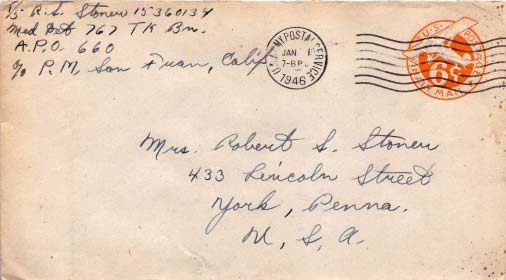 T/5 R. S. Stoner 15360134
Med Det 767 TK Bn.
A.P.O. 660
c/o P.M, San Fran, Calif
U.S. ARMY POSTAL SERVICE
JAN 1
7-8 P
1946
U.S. POSTAGE
VIA AIR MAIL
6¢
Mrs. Robert S. Stoner
433 Lincoln Street
York, Penna.
U, S, A.